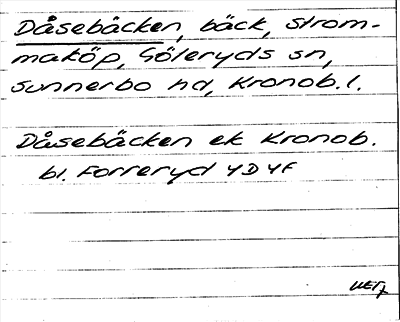 Dåsebäcken, bäck, Strom-
maköp, Göteryds sn,
Sunnerbo hd, Kronob. l.
Dåsebäcken ek Kronob.
bl. Forreryd 4D4f